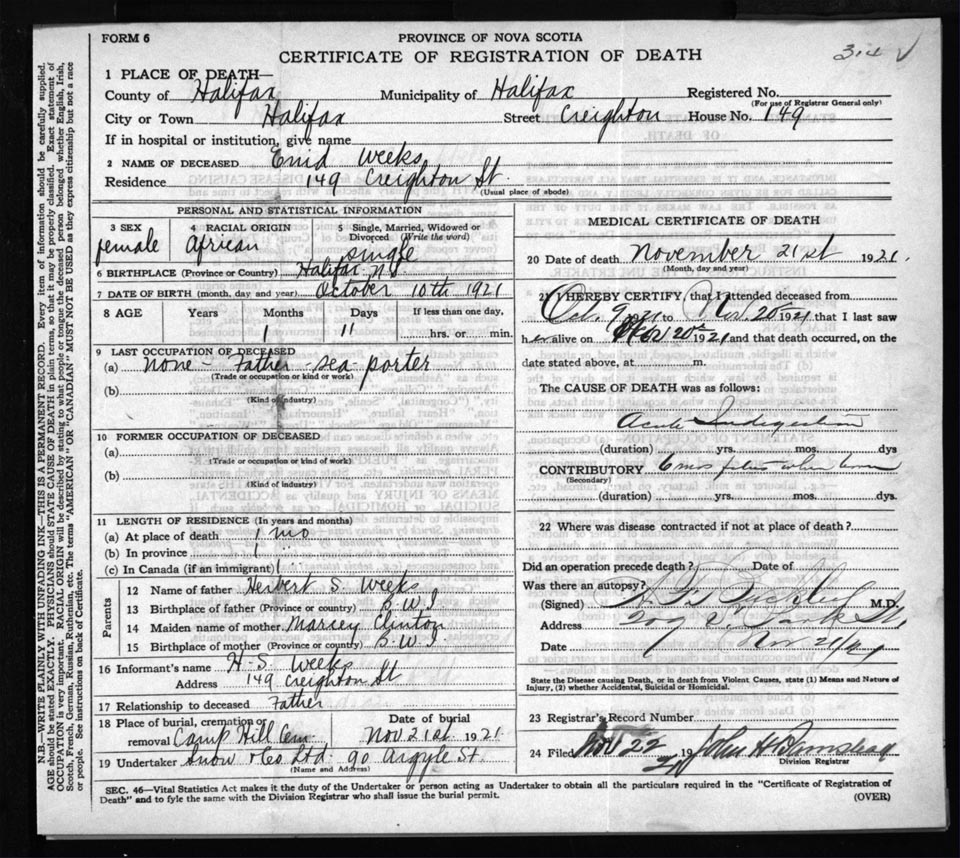 FORM 6
PROVINCE OF NOVA SCOTIA
CERTIFICATE OF REGISTRATION OF DEATH
314 √
1 PLACE OF DEATH—
County of Halifax Municipality of Halifax Registered No.
(For use of Registrar General only)
City or Town Halifax Street Creighton House No. 149
If in hospital or institution, give name
2 NAME OF DECEASED Enid Weeks
Residence 149 Creighton St.
(Usual place of abode)
PERSONAL AND STATISTICAL INFORMATION
3 SEX female
4 RACIAL ORIGIN African
5 Single, Married, Widowed or Divorced (Write the word) single
6 BIRTHPLACE (Province or Country) Halifax NS
7 DATE OF BIRTH (month, day and year) October 10th 1921
8 AGE Years Months Days If less than one day,
1 11 hrs. or min.
9 LAST OCCUPATION OF DECEASED
(a) None - Father sea porter
(Trade or occupation or kind of work)
(b)
(Kind of industry)
10 FORMER OCCUPATION OF DECEASED
(a)
(Trade or occupation or kind of work)
(b)
(Kind of industry)
11 LENGTH OF RESIDENCE (In years and months)
(a) At place of death 1 mo
(b) In province 1
(c) In Canada (if an immigrant) 1
Parents
12 Name of father Herbert S. Weeks
13 Birthplace of father (Province or country) B.W.I
14 Maiden name of mother Marcey Clinton
15 Birthplace of mother (Province or country) B.W.I.
16 Informant's name H. S. Weeks
Address 149 Creighton St
17 Relationship to deceased Father
18 Place of burial, cremation or removal Camp Hill Cem
Date of burial Nov 21st 1921
19 Undertaker Snow & Co Ltd 90 Argyle St.
(Name and Address)
MEDICAL CERTIFICATE OF DEATH
20 Date of death November 21st 1921
(Month, day and year)
21 I HEREBY CERTIFY, that I attended deceased from
Oct. 9 to Nov. 20 1921 that I last saw
her alive on Nov 20th 1921 and that death occurred, on the
date stated above, at m.
The CAUSE OF DEATH was as follows:
Acute Indigestion
(duration) yrs. mos. dys.
CONTRIBUTORY 6 mos when born
(Secondary)
(duration) yrs. mos. dys.
22 Where was disease contracted if not at place of death?
Did an operation precede death? Date of
Was there an autopsy?
(Signed) M.D.
Address 209 Park St.
Date Nov 21/21
State the Disease causing Death, or in death from Violent Causes, state (1) Means and Nature of
Injury, (2) whether Accidental, Suicidal or Homicidal.
23 Registrar's Record Number
24 Filed Nov 22 19 21 John H Barnstead
Division Registrar
SEC. 46—Vital Statistics Act makes it the duty of the Undertaker or person acting as Undertaker to obtain all the particulars required in the "Certificate of Registration of
Death" and to fyle the same with the Division Registrar who shall issue the burial permit.
(OVER)
N.B.—WRITE PLAINLY WITH UNFADING INK—THIS IS A PERMANENT RECORD. Every item of information should be carefully supplied.
AGE should be stated EXACTLY. PHYSICIANS should STATE CAUSE OF DEATH in plain terms, so that it may be properly classified. Exact statement of
OCCUPATION is very important. RACIAL ORIGIN will be described by stating to what people or tongue the deceased person belonged whether English, Irish,
Scotch, French, German, Russian, Ruthenian, etc. The terms "AMERICAN" OR "CANADIAN" MUST NOT BE USED as they express citizenship but not a race
or people. See instructions on back of Certificate.